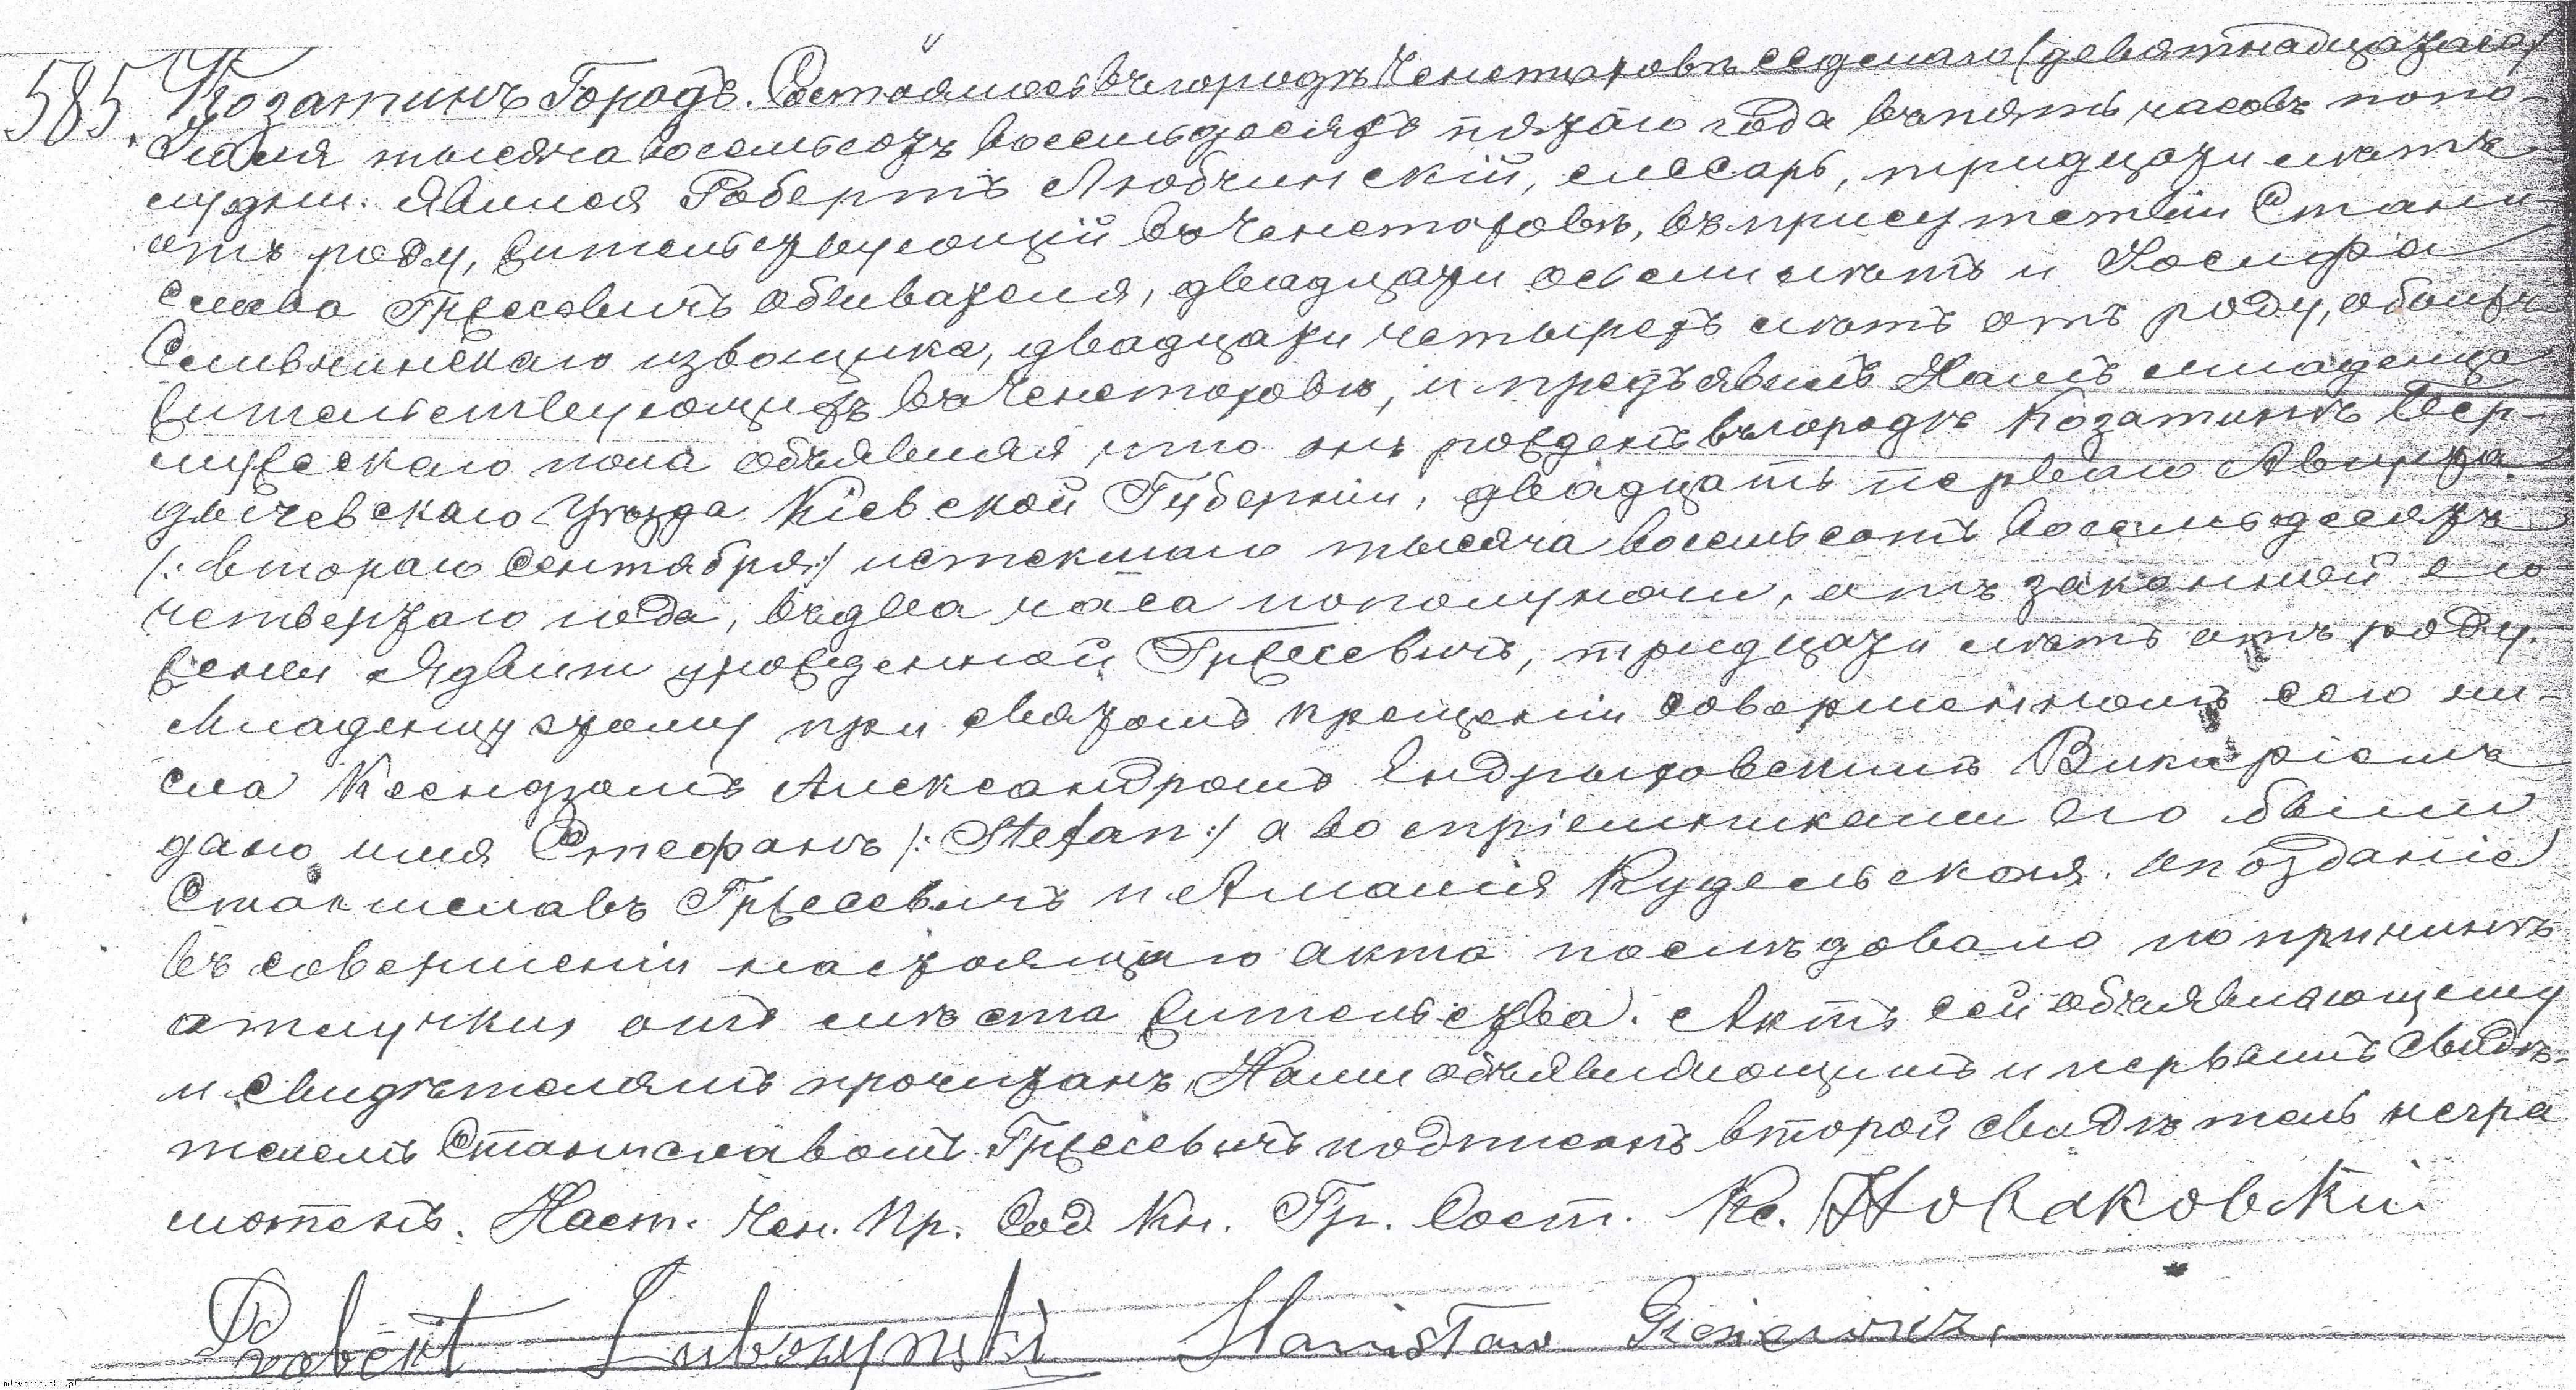 585. Козатинъ Городъ. Состоялось въ городѣ Ченстоховѣ седьмаго (девятнадцатаго)
тысяча восемьсотъ восемьдесятъ пятаго года въ пять часовъ попо-
лудни. Явился Робертъ Любчинскій, слесарь, тридцати лѣтъ
отъ роду, жительствующій въ Ченстоховѣ, въ присутствіи Стани-
слава Гржесевичъ обывателя, двадцати осьми лѣтъ и Іосифа
извощика, двадцати четырехъ лѣтъ отъ роду, обоихъ
жительствующихъ въ Ченстоховѣ, и предъявилъ Намъ младенца
мужескаго пола объявляя, что онъ рожденъ въ городѣ Козатинѣ Бер-
дычевскаго Уѣзда Кіевской Губерніи, двадцать перваго Августа
/: втораго Сентября :/ истекшаго тысяча восемьсотъ восемьдесятъ
четвертаго года, въ два часа пополуночи, отъ законной его
жены Ядвиги урожденной Гржесевичъ, тридцати лѣтъ отъ роду.
Младенцу этому при святомъ крещеніи совершенномъ сего чи-
сла Ксендзомъ Александромъ Ендрыховскимъ Викаріемъ
дано имя Стефанъ /: Stefan :/ а воспріемниками его были
Станиславъ Гржесевичъ и Амалія Кудельская. Опозданіе
въ совершеніи настоящаго акта послѣдовало по причинѣ
отлучки отъ мѣста жительства. Актъ сей объявляющему
и свидѣтелямъ прочитанъ, Нами объявляющимъ и первымъ свидѣ-
телемъ Станиславомъ Гржесевичъ подписанъ второй свидѣтель негра
мотенъ. Наст. Чен. Пр. Сод Кн. Гр. Сост. Кс.
Robert Lubczynski Stanisław
mlewandowski.pl